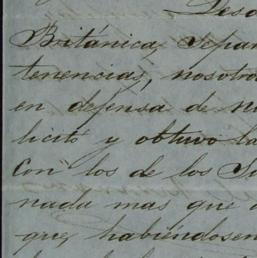 Desd
Británica, separ
tenencias, nosotro
en defensa de nu
licitó y obtuvo la
con los de los Su
nada mas que a
que, habiéndosen